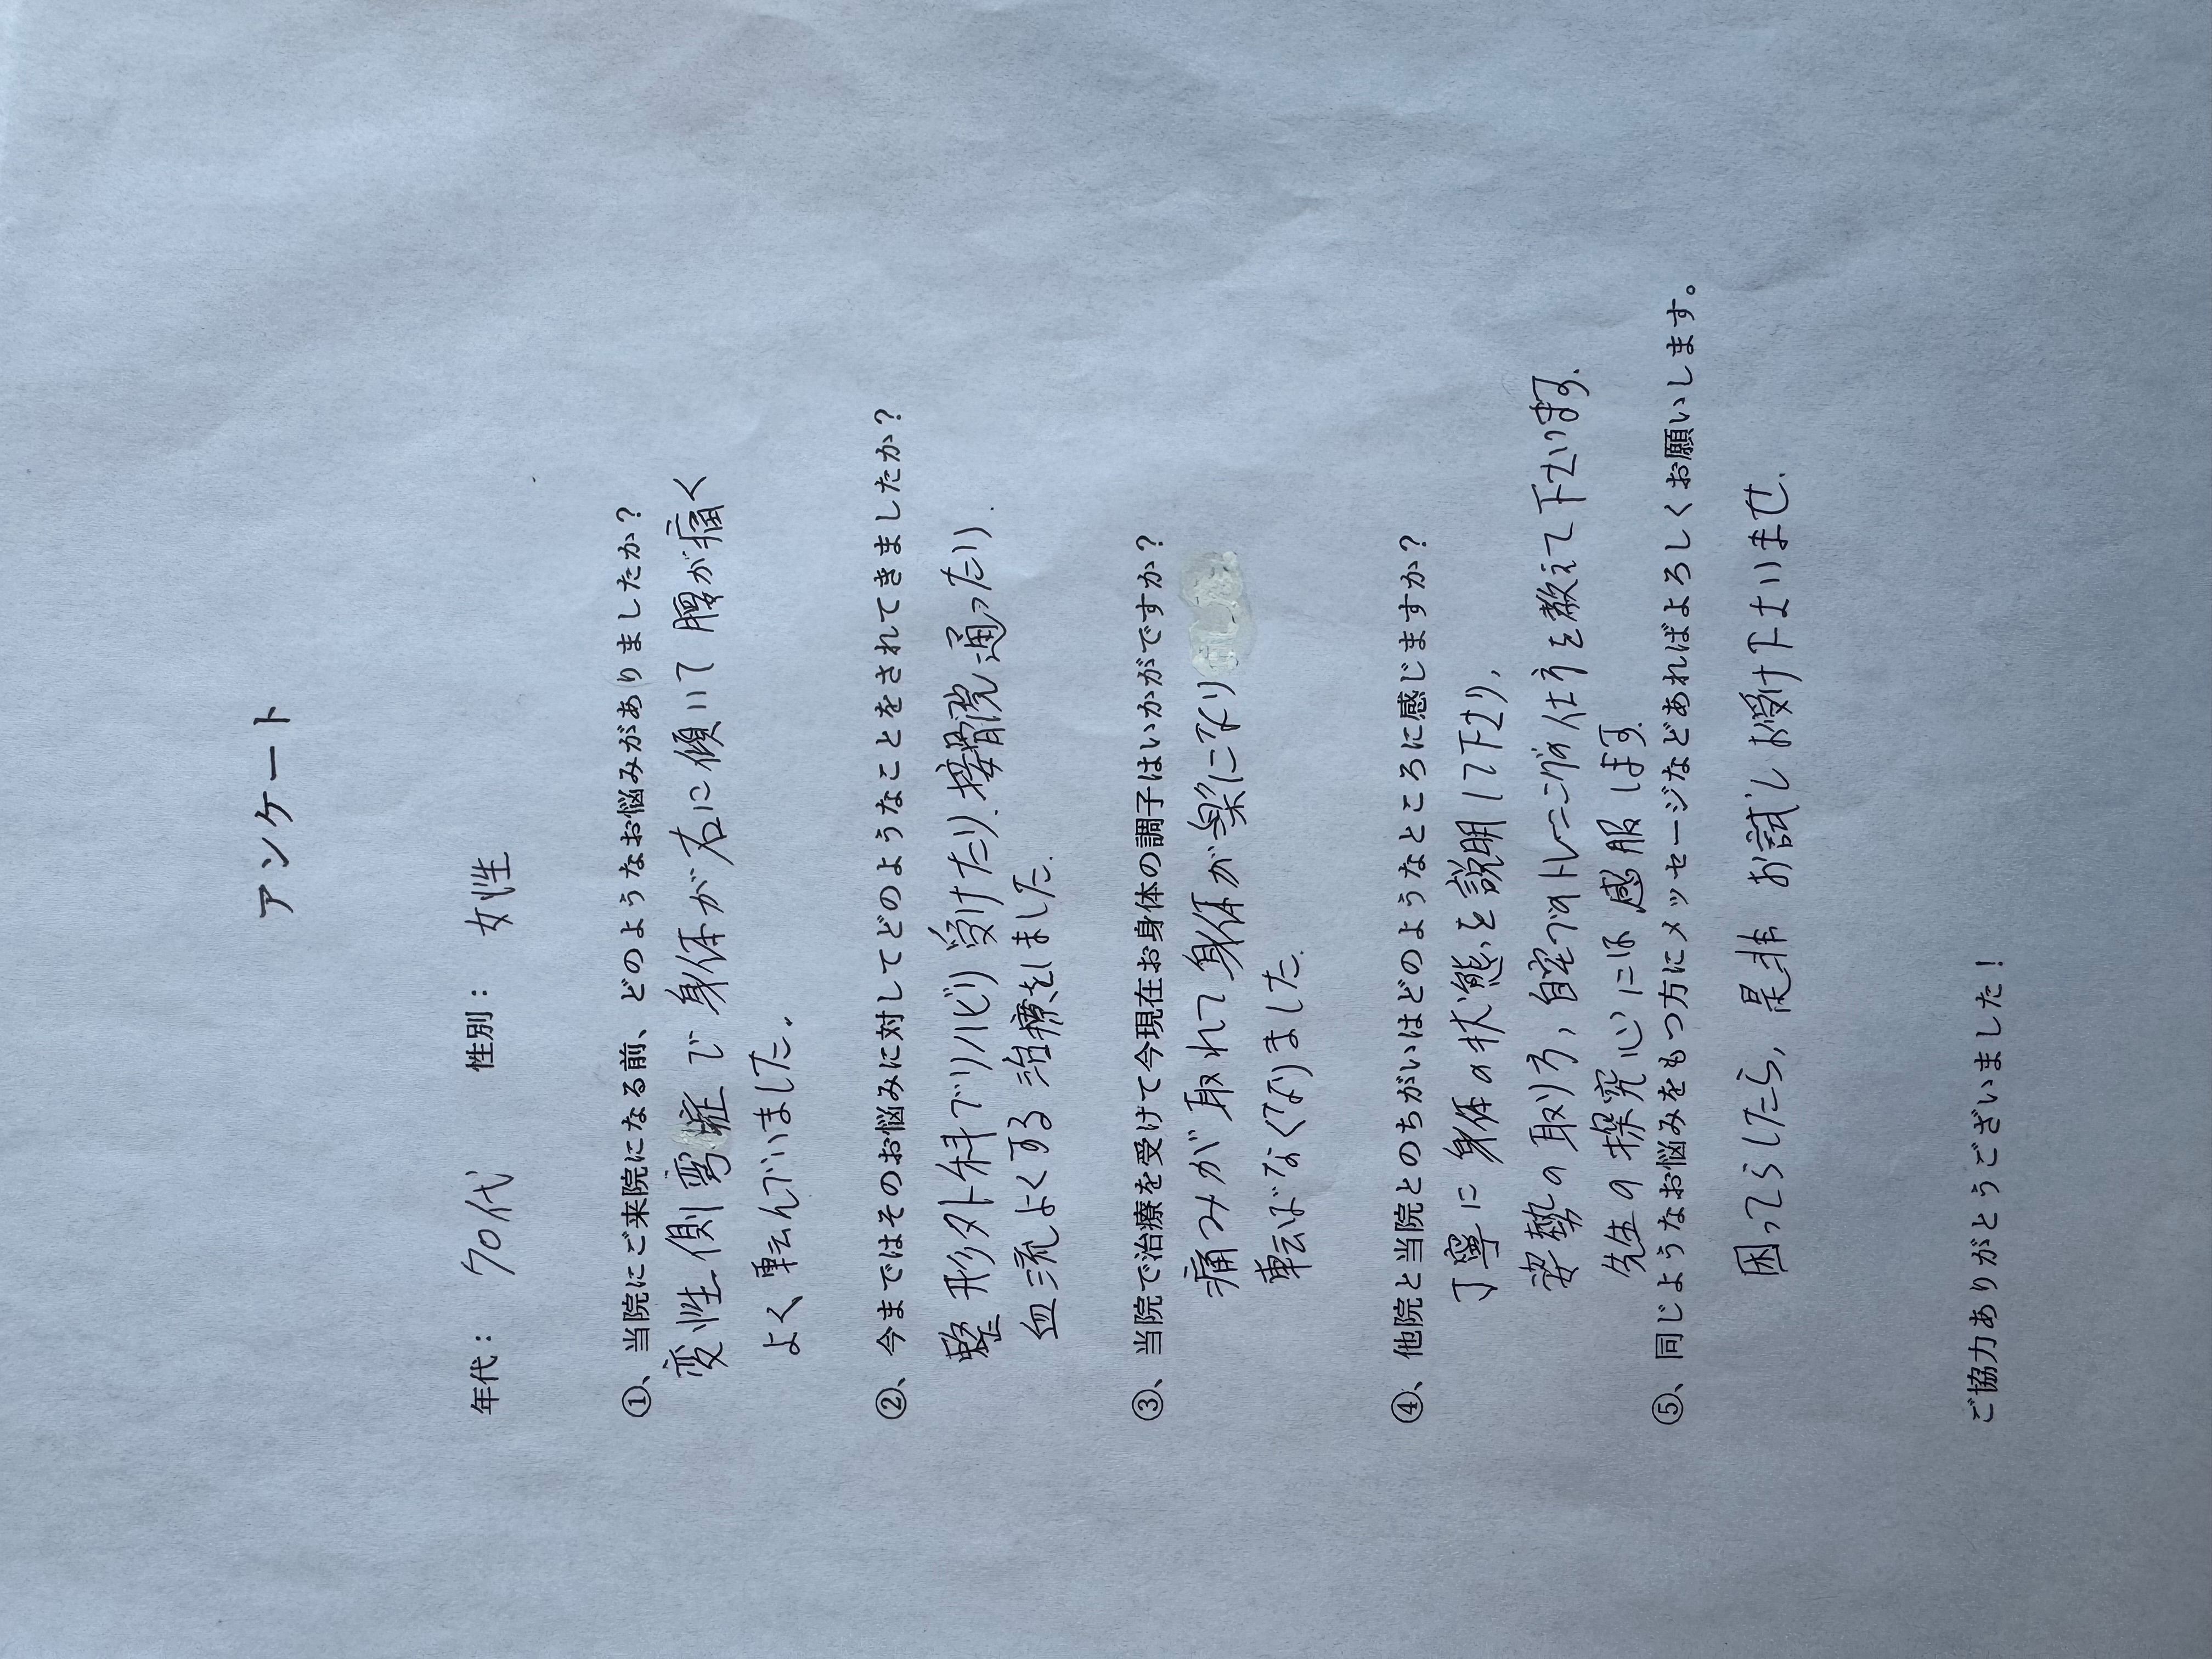 アンケート
年代： 70代　性別： 女性
①、当院にご来院になる前、どのようなお悩みがありましたか？
変性側弯症で身体が右に傾いて腰が痛く
よく転んでいました。
②、今まではそのお悩みに対してどのようなことをされてきましたか？
整形外科でリハビリ受けたり、接骨院通ったり、
血流よくする治療をしました。
③、当院で治療を受けて今現在お身体の調子はいかがですか？
痛みが取れて身体が楽になり
転ばなくなりました。
④、他院と当院とのちがいはどのようなところに感じますか？
丁寧に身体の状態を説明して下さり、
姿勢の取り方、自宅でのトレーニングの仕方を教えて下さいます。
先生の探究心には感服します。
⑤、同じようなお悩みをもつ方にメッセージなどあればよろしくお願いします。
困ってらしたら、是非お試しお受け下さいませ。
ご協力ありがとうございました！